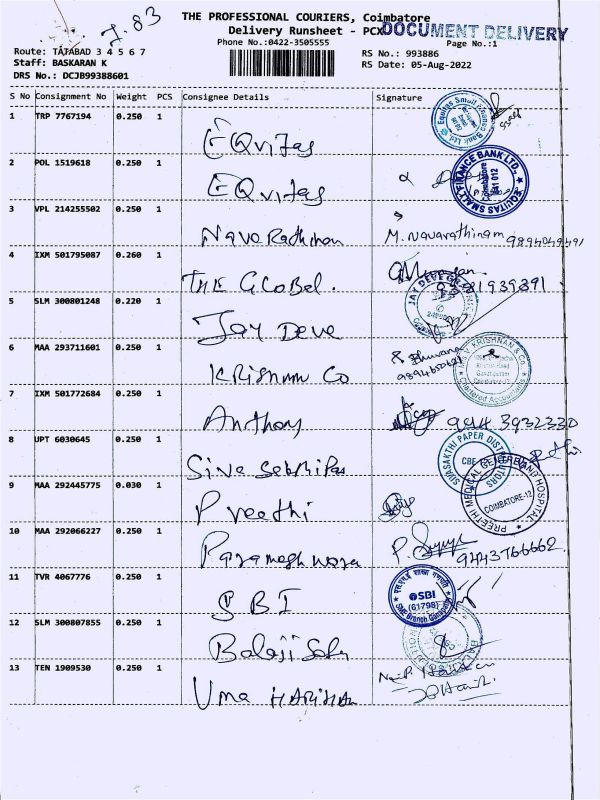 7.83
THE PROFESSIONAL COURIERS, Coimbatore
Delivery Runsheet - PCX
DOCUMENT DELIVERY
Phone No.:0422-3505555
Page No.:1
Route: TATABAD 3 4 5 6 7
RS No.: 993886
Staff: BASKARAN K
RS Date: 05-Aug-2022
DRS No.: DCJB99388601
S No Consignment No Weight PCS Consignee Details Signature
1 TRP 7767194 0.250 1 EQvitas
2 POL 1519618 0.250 1 EQvitas
EQUITAS SMALL FINANCE BANK LTD.
Coimbatore
641 012
3 VPL 214255502 0.250 1 Nava Rathinan M. Navarathinam 9894049491
4 IXM 501795087 0.260 1 THE GLOBEL.
5 SLM 300801248 0.220 1 Jay Deve
6 MAA 293711601 0.250 1 KRISHNAN CO
V KRISHNAN & Co
Chartered Accountants
7 IXM 501772684 0.250 1 Anthony 944 3932330
8 UPT 6030645 0.250 1
SIVASAKTHI PAPER DISTRIBUTORS
CBE
9 MAA 292445775 0.030 1 Preethi
PREETHI MEDICAL CENTER HOSPITAL
COIMBATORE-12
10 MAA 292066227 0.250 1 Parameshwara 9443766662
11 TVR 4067776 0.250 1 SBI
SBI
(61798)
SME Branch
12 SLM 300807855 0.250 1 Balaji
13 TEN 1909530 0.250 1 Uma HARIHAN